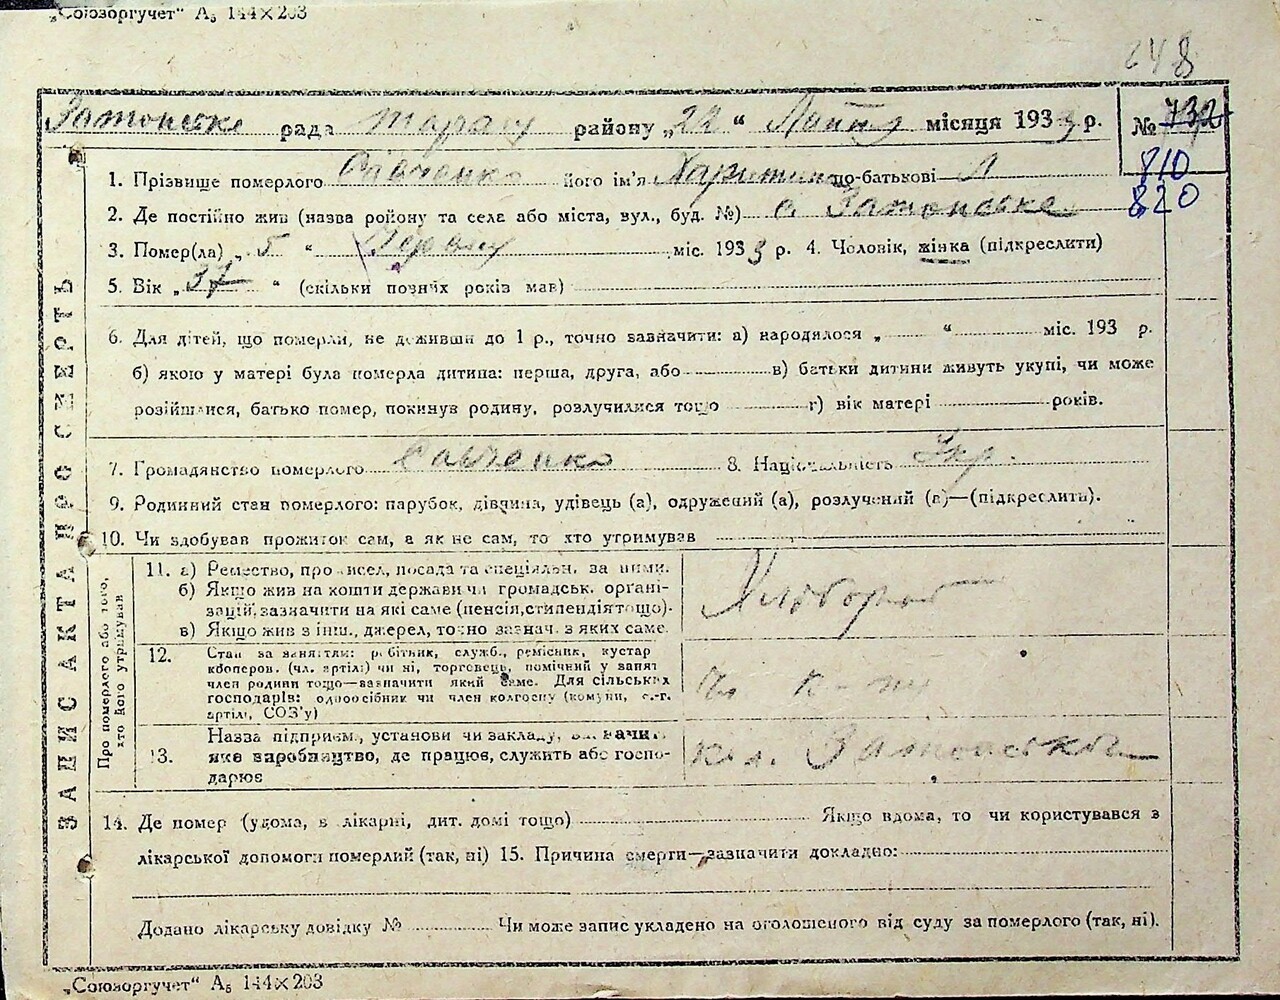 „Союзоргучет“ А₅ 144×203
248
Затонське рада району „22“ місяця 1933 р. № 732
810
1. Прізвище померлого Савченко його ім'я Харитина по-батькові Л
820
2. Де постійно жив (назва району та села або міста, вул., буд. №) с. Затонське
3. Помер(ла) „5“ міс. 1933 р. 4. Чоловік, жінка (підкреслити)
5. Вік „37“ (скільки повних років мав)
6. Для дітей, що померли, не доживши до 1 р., точно зазначити: а) народилося „ “ міс. 193 р.
б) якою у матері була померла дитина: перша, друга, або в) батьки дитини живуть укупі, чи може
розійшлися, батько помер, покинув родину, розлучилися тощо г) вік матері років.
7. Громадянство померлого Савченко 8. Національність Укр.
9. Родинний стан померлого: парубок, дівчина, удівець (а), одружений (а), розлучений (а)—(підкреслить).
10. Чи здобував прожиток сам, а як не сам, то хто утримував
ЗАПИС АКТА ПРО СМЕРТЬ
Про померлого або того, хто його утримував
11. а) Ремество, промисел, посада та спеціяльн. за ними.
б) Якщо жив на кошти держави чи громадськ. органі-
зацій, зазначити на які саме (пенсія, стипендія тощо).
в) Якщо жив з інш., джерел, точно зазнач. з яких саме.
Хлібороб
12. Стан за занятти: робітник, служб., ремісник, кустар
кооперов. (чл. артілі) чи ні, торговець, помічний у занят
член родини тощо—зазначити який саме. Для сільських
господарів: одноосібник чи член колгоспу (комуни, с.-г.
артілі, СОЗ'у)
13. Назва підприєм., установи чи закладу, зазначить
яке виробництво, де працює, служить або госпо-
дарює
14. Де помер (удома, в лікарні, дит. домі тощо) Якщо вдома, то чи користувався з
лікарської допомоги померлий (так, ні) 15. Причина смерти—зазначити докладно:
Додано лікарську довідку № Чи може запис укладено на оголошеного від суду за померлого (так, ні).
„Союзоргучет“ А₅ 144×203